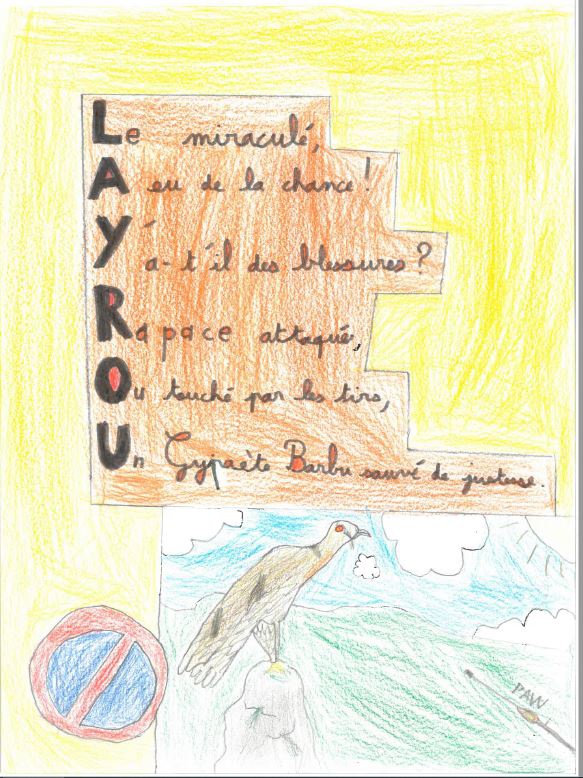 Le miraculé,
A eu de la chance !
Y á-t'il des blessures ?
Rapace attaqué,
Ou touché par les tirs,
Un Gypaète Barbu sauvé de justesse.
PAW